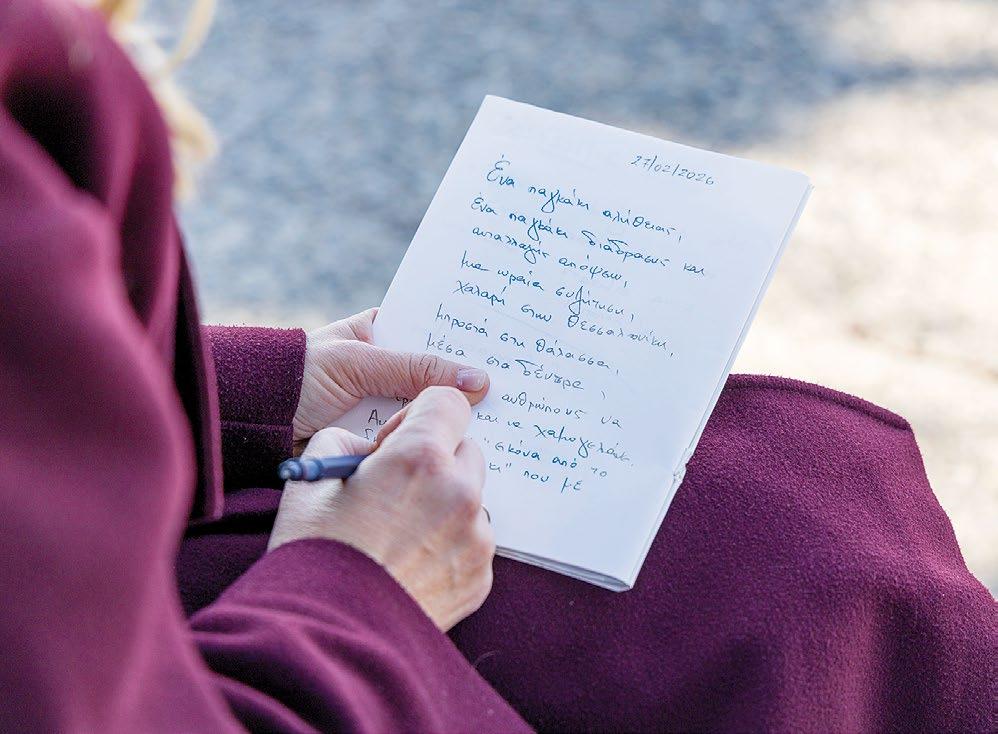 27/02/2026
Ένα παγκάκι αλήθειας,
ένα παγκάκι διάδρασης και
ανταλλαγής απόψεων,
μια ωραία συζήτηση,
χαλαρή στην Θεσσαλονίκη,
μπροστά στη θάλασσα,
μέσα στα δέντρα,
ανθρώπους να
και να χαμογελάνε.
"εικόνα από το
που με